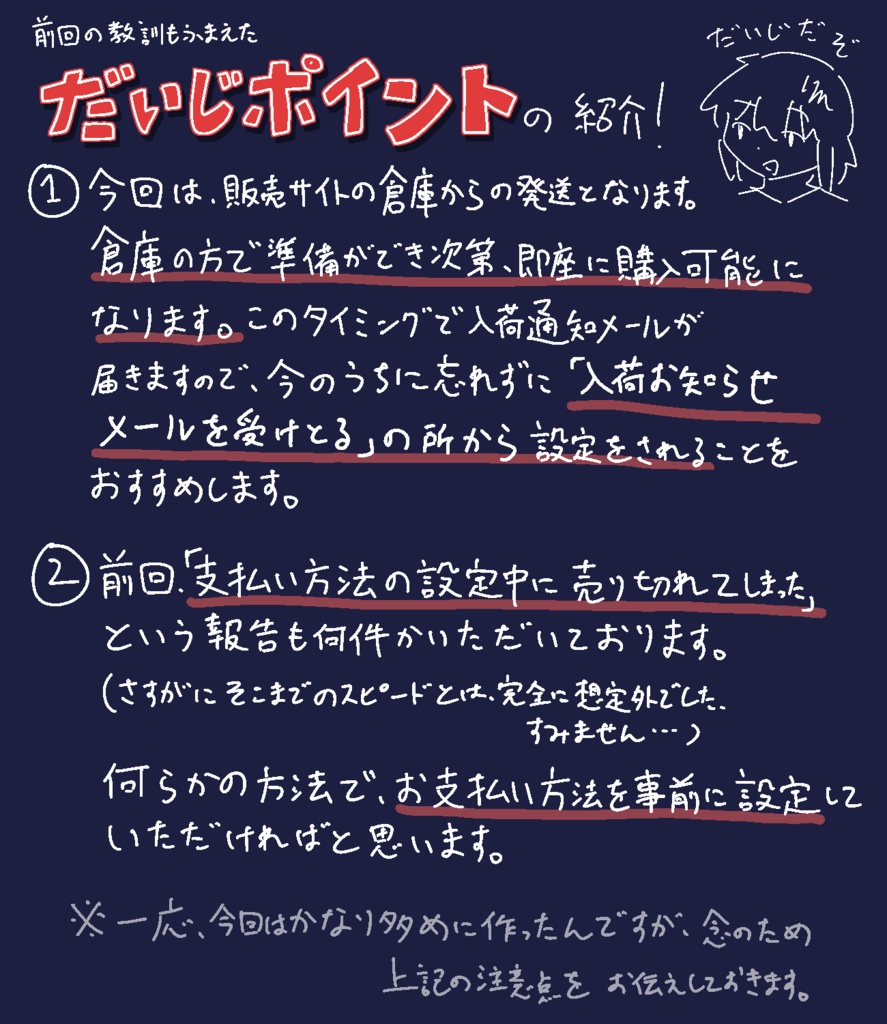 前回の教訓もふまえた
だいじポイントの紹介!
だいじだぞ
① 今回は、販売サイトの倉庫からの発送となります。
倉庫の方で準備ができ次第、即座に購入可能に
なります。このタイミングで入荷通知メールが
届きますので、今のうちに忘れずに「入荷お知らせ
メールを受けとる」の所から設定をされることを
おすすめします。
② 前回、「支払い方法の設定中に売り切れてしまった」
という報告も何件かいただいております。
(さすがにそこまでのスピードとは、完全に想定外でした、
すみません…)
何らかの方法で、お支払い方法を事前に設定して
いただければと思います。
※一応、今回はかなり多めに作ったんですが、念のため
上記の注意点をお伝えしておきます。